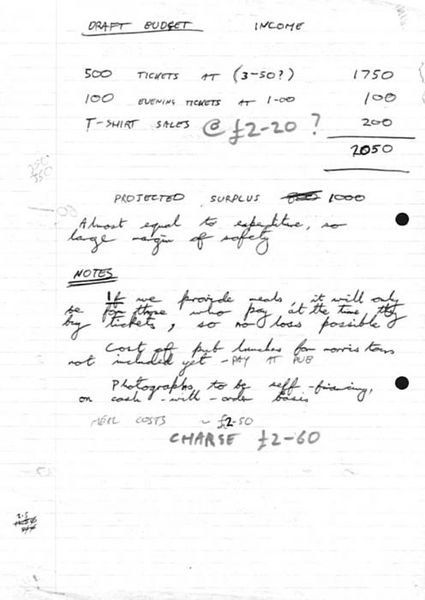 DRAFT BUDGET INCOME
500 TICKETS AT (3-50?) 1750
100 EVENING TICKETS AT 1-00 100
T-SHIRT SALES @ £2-20 ? 200
2050
PROJECTED SURPLUS 1000
Almost equal to expenditure, so
large margin of safety
NOTES
If we provide meals, it will only
be for those who pay at the time they
buy tickets, so no loss possible
Cost of pub lunches for morris teams
not included yet - PAY AT PUB
Photographs, to be self-financing,
on cash-with-order basis
MEAL COSTS ~ £2-50
CHARGE £2-60